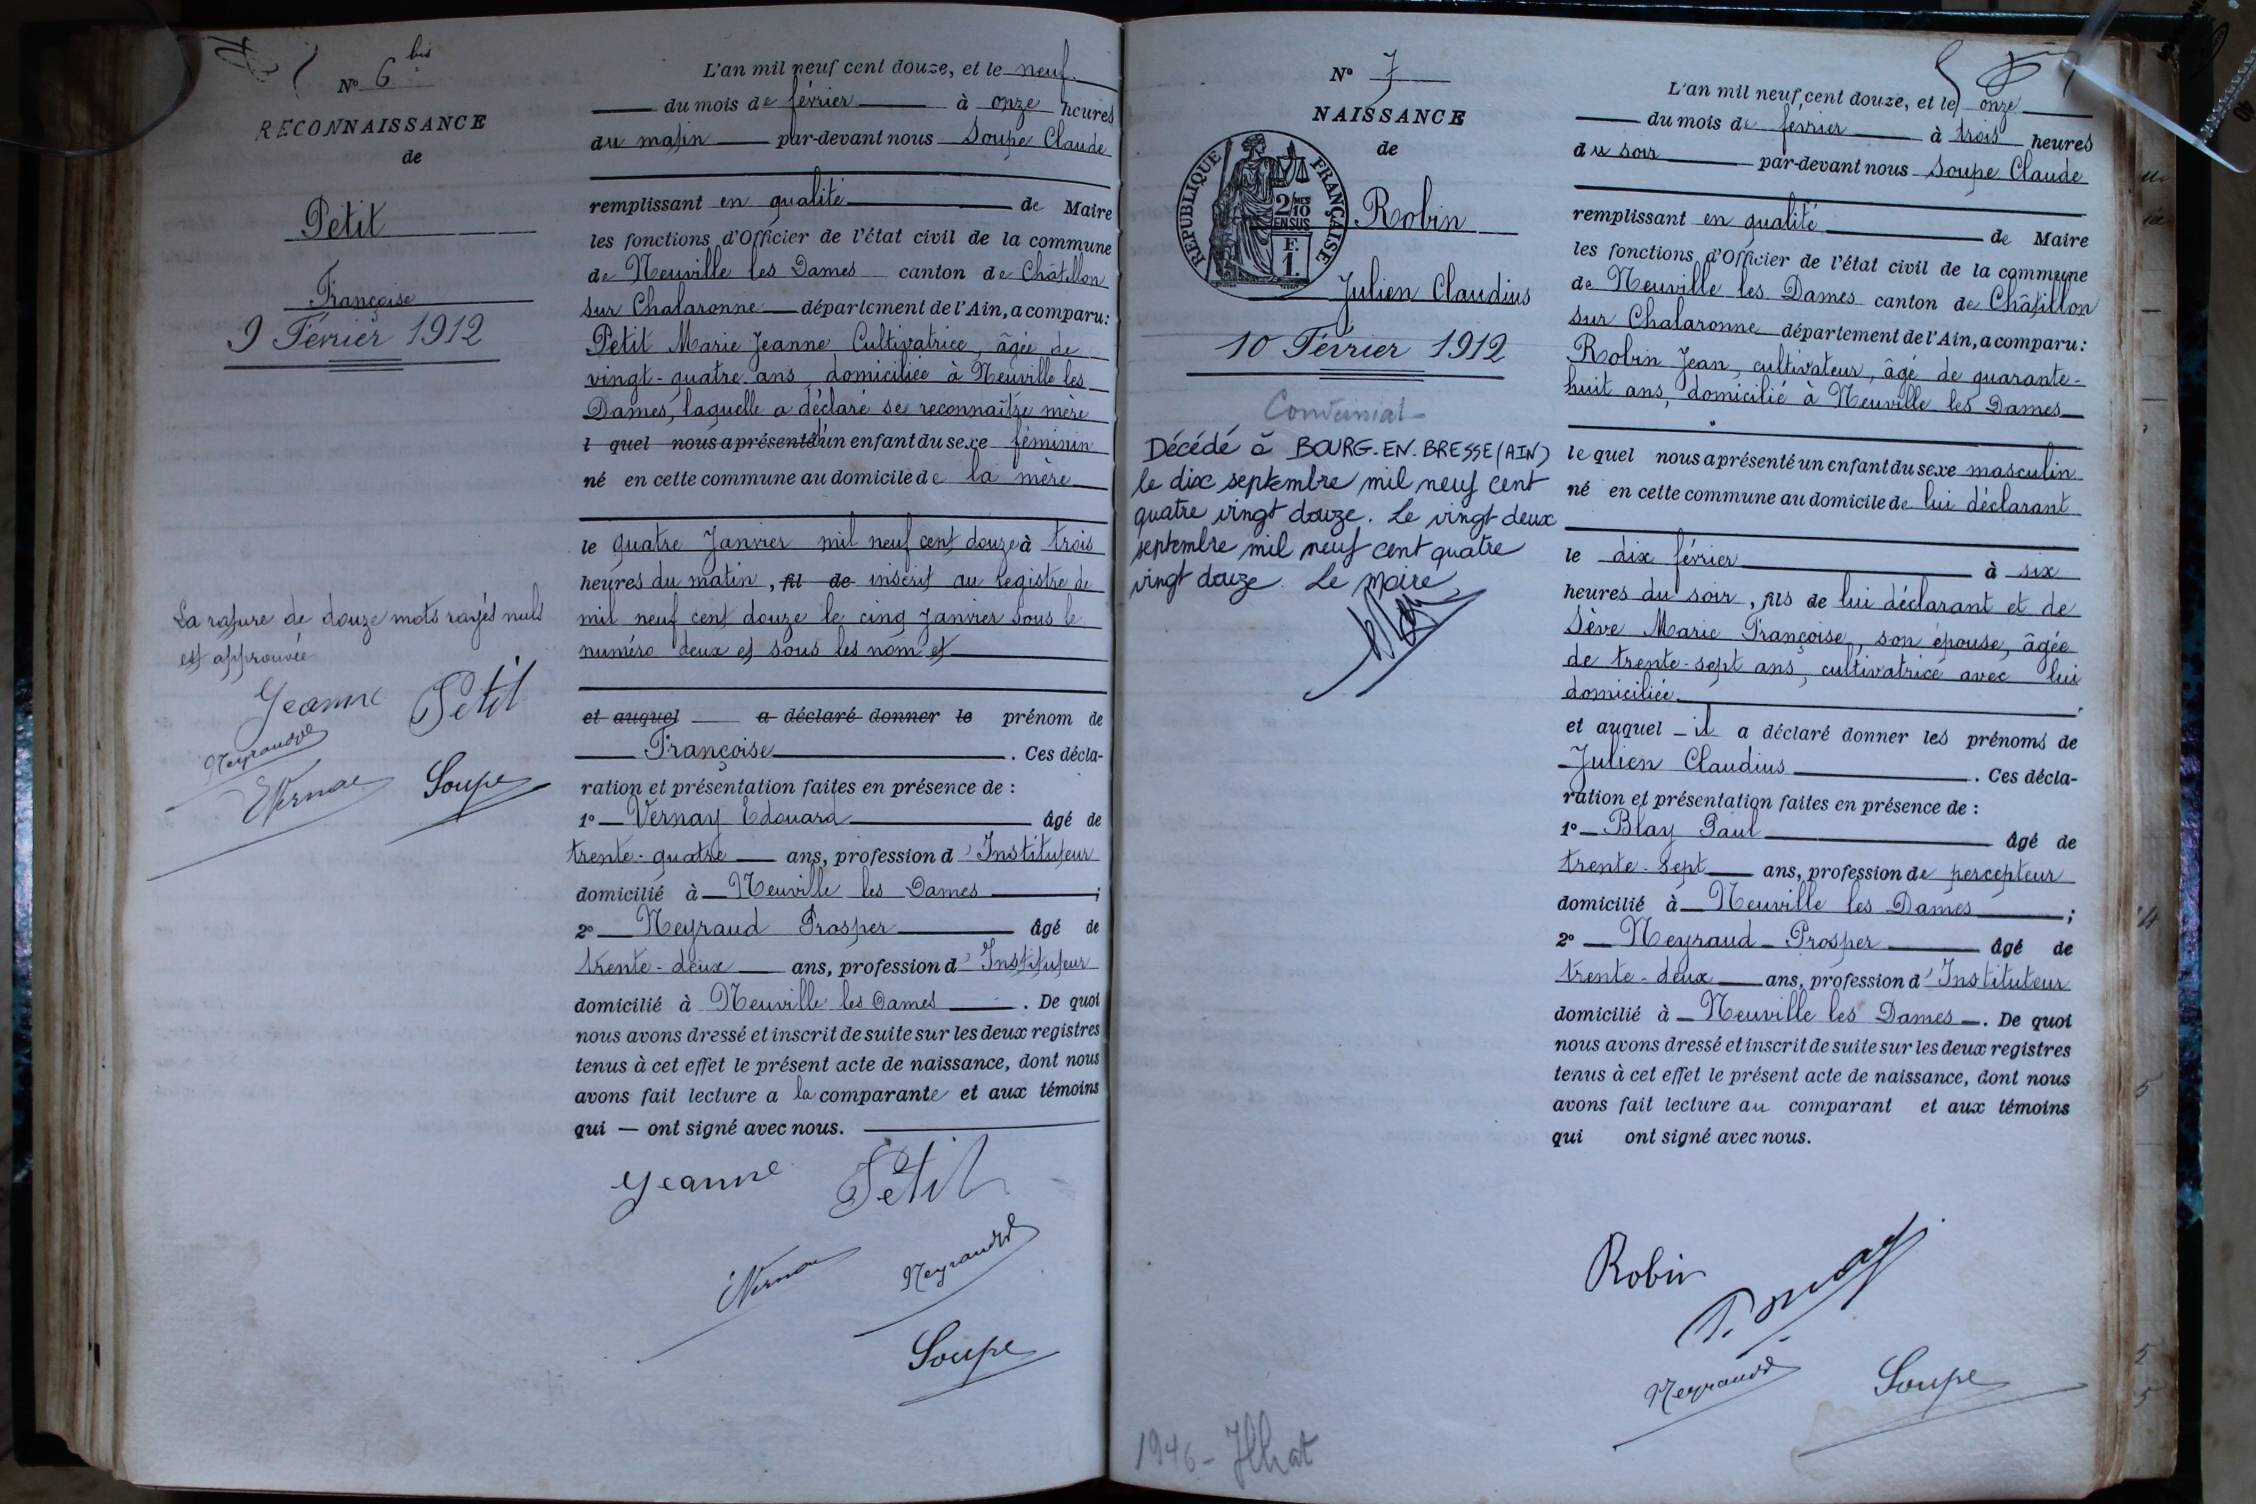 N° 6 bis
RECONNAISSANCE
de
Petit
Françoise
9 Février 1912
La rature de douze mots rayés nuls
est approuvée
Jeanne Petit
Neyraud
EVernay Soupe
L'an mil neuf cent douze, et le neuf
du mois de février à onze heures
du matin par-devant nous Soupe Claude
remplissant en qualité de Maire
les fonctions d'Officier de l'état civil de la commune
de Neuville les Dames canton de Châtillon
sur Chalaronne département de l'Ain, a comparu:
Petit Marie Jeanne Cultivatrice, âgée de
vingt-quatre ans domiciliée à Neuville les
Dames, laquelle a déclaré se reconnaître mère
l quel nous a présenté d'un enfant du sexe féminin
né en cette commune au domicile de la mère
le quatre Janvier mil neuf cent douze à trois
heures du matin, fil de inscrit au registre de
mil neuf cent douze le cinq Janvier sous le
numéro deux et sous les nom et
et auquel a déclaré donner le prénom de
Françoise. Ces décla-
ration et présentation faites en présence de :
1° Vernay Edouard âgé de
trente-quatre ans, profession d'Instituteur
domicilié à Neuville les Dames ;
2° Neyraud Prosper âgé de
trente-deux ans, profession d'Instituteur
domicilié à Neuville les Dames. De quoi
nous avons dressé et inscrit de suite sur les deux registres
tenus à cet effet le présent acte de naissance, dont nous
avons fait lecture a la comparante et aux témoins
qui — ont signé avec nous.
Jeanne Petit
EVernay Neyraud
Soupe
N° 7
NAISSANCE
de
RÉPUBLIQUE FRANÇAISE
2/10 MES
EN SUS
F.
1.
Robin
Julien Claudius
10 Février 1912
Décédé à BOURG-EN-BRESSE (AIN)
le dix septembre mil neuf cent
quatre vingt douze. Le vingt deux
septembre mil neuf cent quatre
vingt douze. Le Maire
1946 -
5
L'an mil neuf cent douze, et le onze
du mois de février à trois heures
du soir par-devant nous Soupe Claude
remplissant en qualité de Maire
les fonctions d'Officier de l'état civil de la commune
de Neuville les Dames canton de Châtillon
sur Chalaronne département de l'Ain, a comparu:
Robin Jean, cultivateur, âgé de quarante-
huit ans, domicilié à Neuville les Dames
le quel nous a présenté un enfant du sexe masculin
né en cette commune au domicile de lui déclarant
le dix février à six
heures du soir, fils de lui déclarant et de
Sève Marie Françoise, son épouse, âgée
de trente-sept ans, cultivatrice avec lui
domiciliée
et auquel il a déclaré donner les prénoms de
Julien Claudius. Ces décla-
ration et présentation faites en présence de :
1° Blay Paul âgé de
trente-sept ans, profession de percepteur
domicilié à Neuville les Dames ;
2° Neyraud Prosper âgé de
trente-deux ans, profession d'Instituteur
domicilié à Neuville les Dames. De quoi
nous avons dressé et inscrit de suite sur les deux registres
tenus à cet effet le présent acte de naissance, dont nous
avons fait lecture au comparant et aux témoins
qui ont signé avec nous.
Robin
Neyraud Soupe